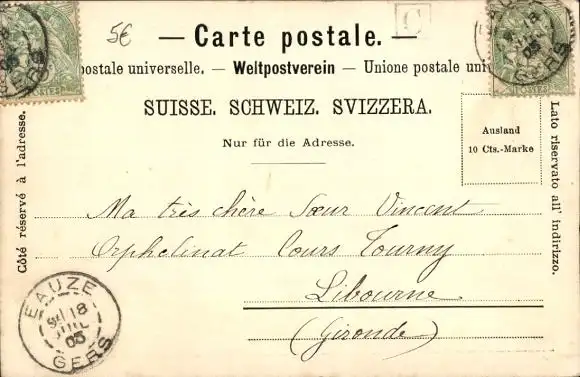 5€
C
— Carte postale. —
postale universelle. — Weltpostverein — Unione postale uni
SUISSE. SCHWEIZ. SVIZZERA.
Nur für die Adresse.
Ausland
10 Cts.-Marke
Côté réservé à l'adresse.
Lato riservato all' indirizzo.
Ma très chère Sœur Vincent
Orphelinat Cours Tourny
Libourne
(Gironde)
EAUZE
18
JUIL
05
GERS
POSTES
GERS
18
05
GERS
POSTES